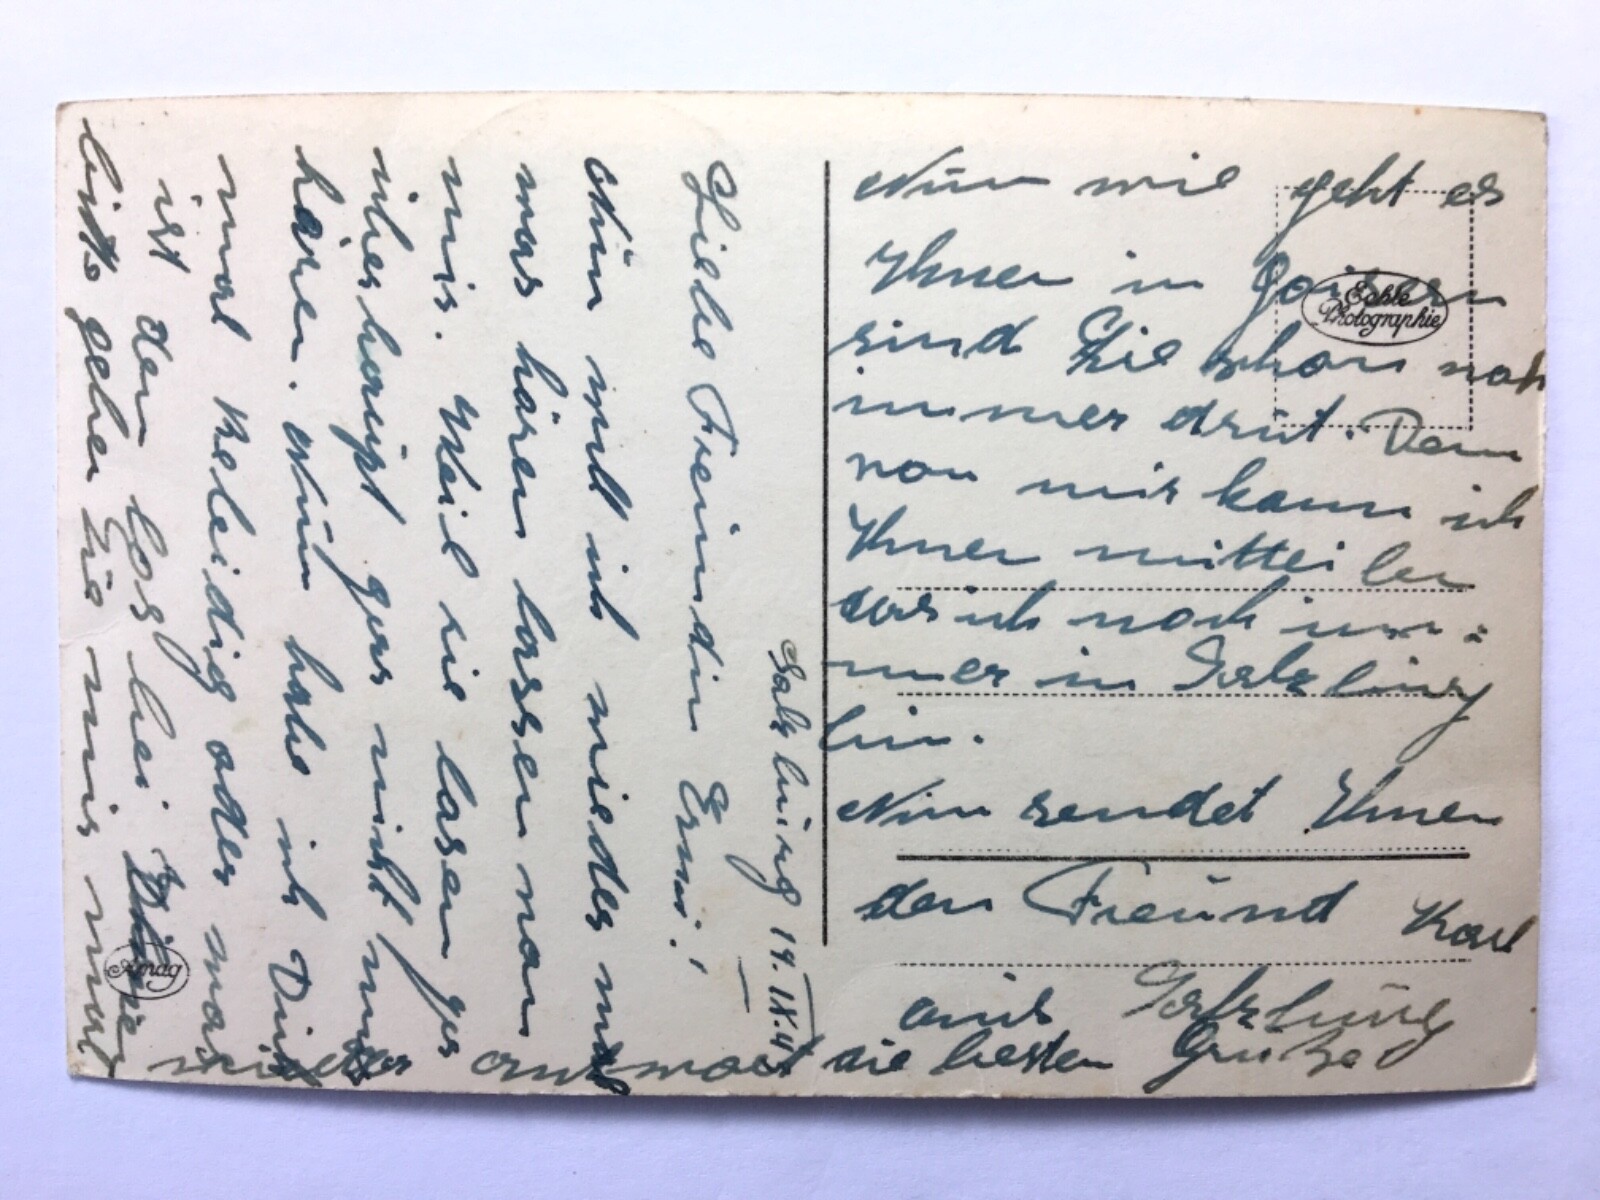 Salzburg 19. IX. 41
Liebe Freundin Erni!
Nun will ich wieder mal
was hören lassen von
mir. Weil sie lasen gar
überhaupt gar nicht mer
hören. Nun habe ich Dich
mal beleidig oder was
ist den los bei
bitte geben Sie mir mal
wieder antwort
Nun wie geht es
Ihnen in Goisern
sind Sie schon noch
immer drüt. Den
von mir kann ich
Ihnen mitteilen
das ich noch im-
mer in Salzburg
bin.
Nun sendet Ihnen
den Freund Karl
aus Salzburg
die besten Grüße
Echte
Photographie
Amag